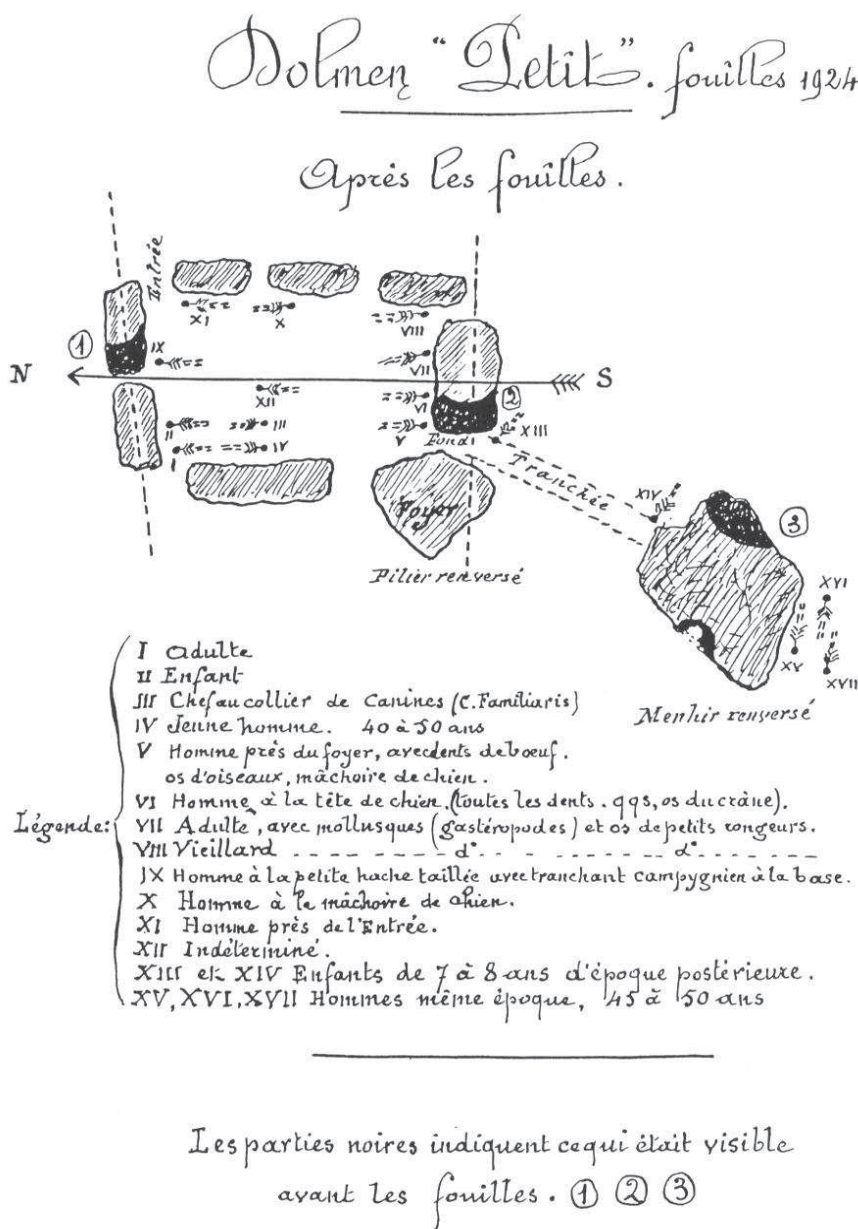 Dolmen "Petit". fouilles 1924
Après les fouilles.
Entrée
XI
X
VIII
1
IX
VII
N
S
XII
VI
2
II
III
V
XIII
I
IV
Fond
Tranchée
XIV
3
Foyer
Pilier renversé
XVI
XV
XVII
Menhir renversé
Légende:
I Adulte
II Enfant
III Chef au collier de Canines (C. Familiaris)
IV Jeune homme. 40 à 50 ans
V Homme près du foyer, avec dents de boeuf.
os d'oiseaux, mâchoire de chien.
VI Homme à la tête de chien. (toutes les dents. qqs, os du crâne).
VII Adulte, avec mollusques (gastéropodes) et os de petits rongeurs.
VIII Vieillard - - - - - d° - - - - - - d° - - - - - -
IX Homme à la petite hache taillée avec tranchant campygnien à la base.
X Homme à le mâchoire de chien.
XI Homme près de l'Entrée.
XII Indéterminé.
XIII et XIV Enfants de 7 à 8 ans d'époque postérieure.
XV, XVI, XVII Hommes même époque, 45 à 50 ans
Les parties noires indiquent ce qui était visible
avant les fouilles. 1 2 3